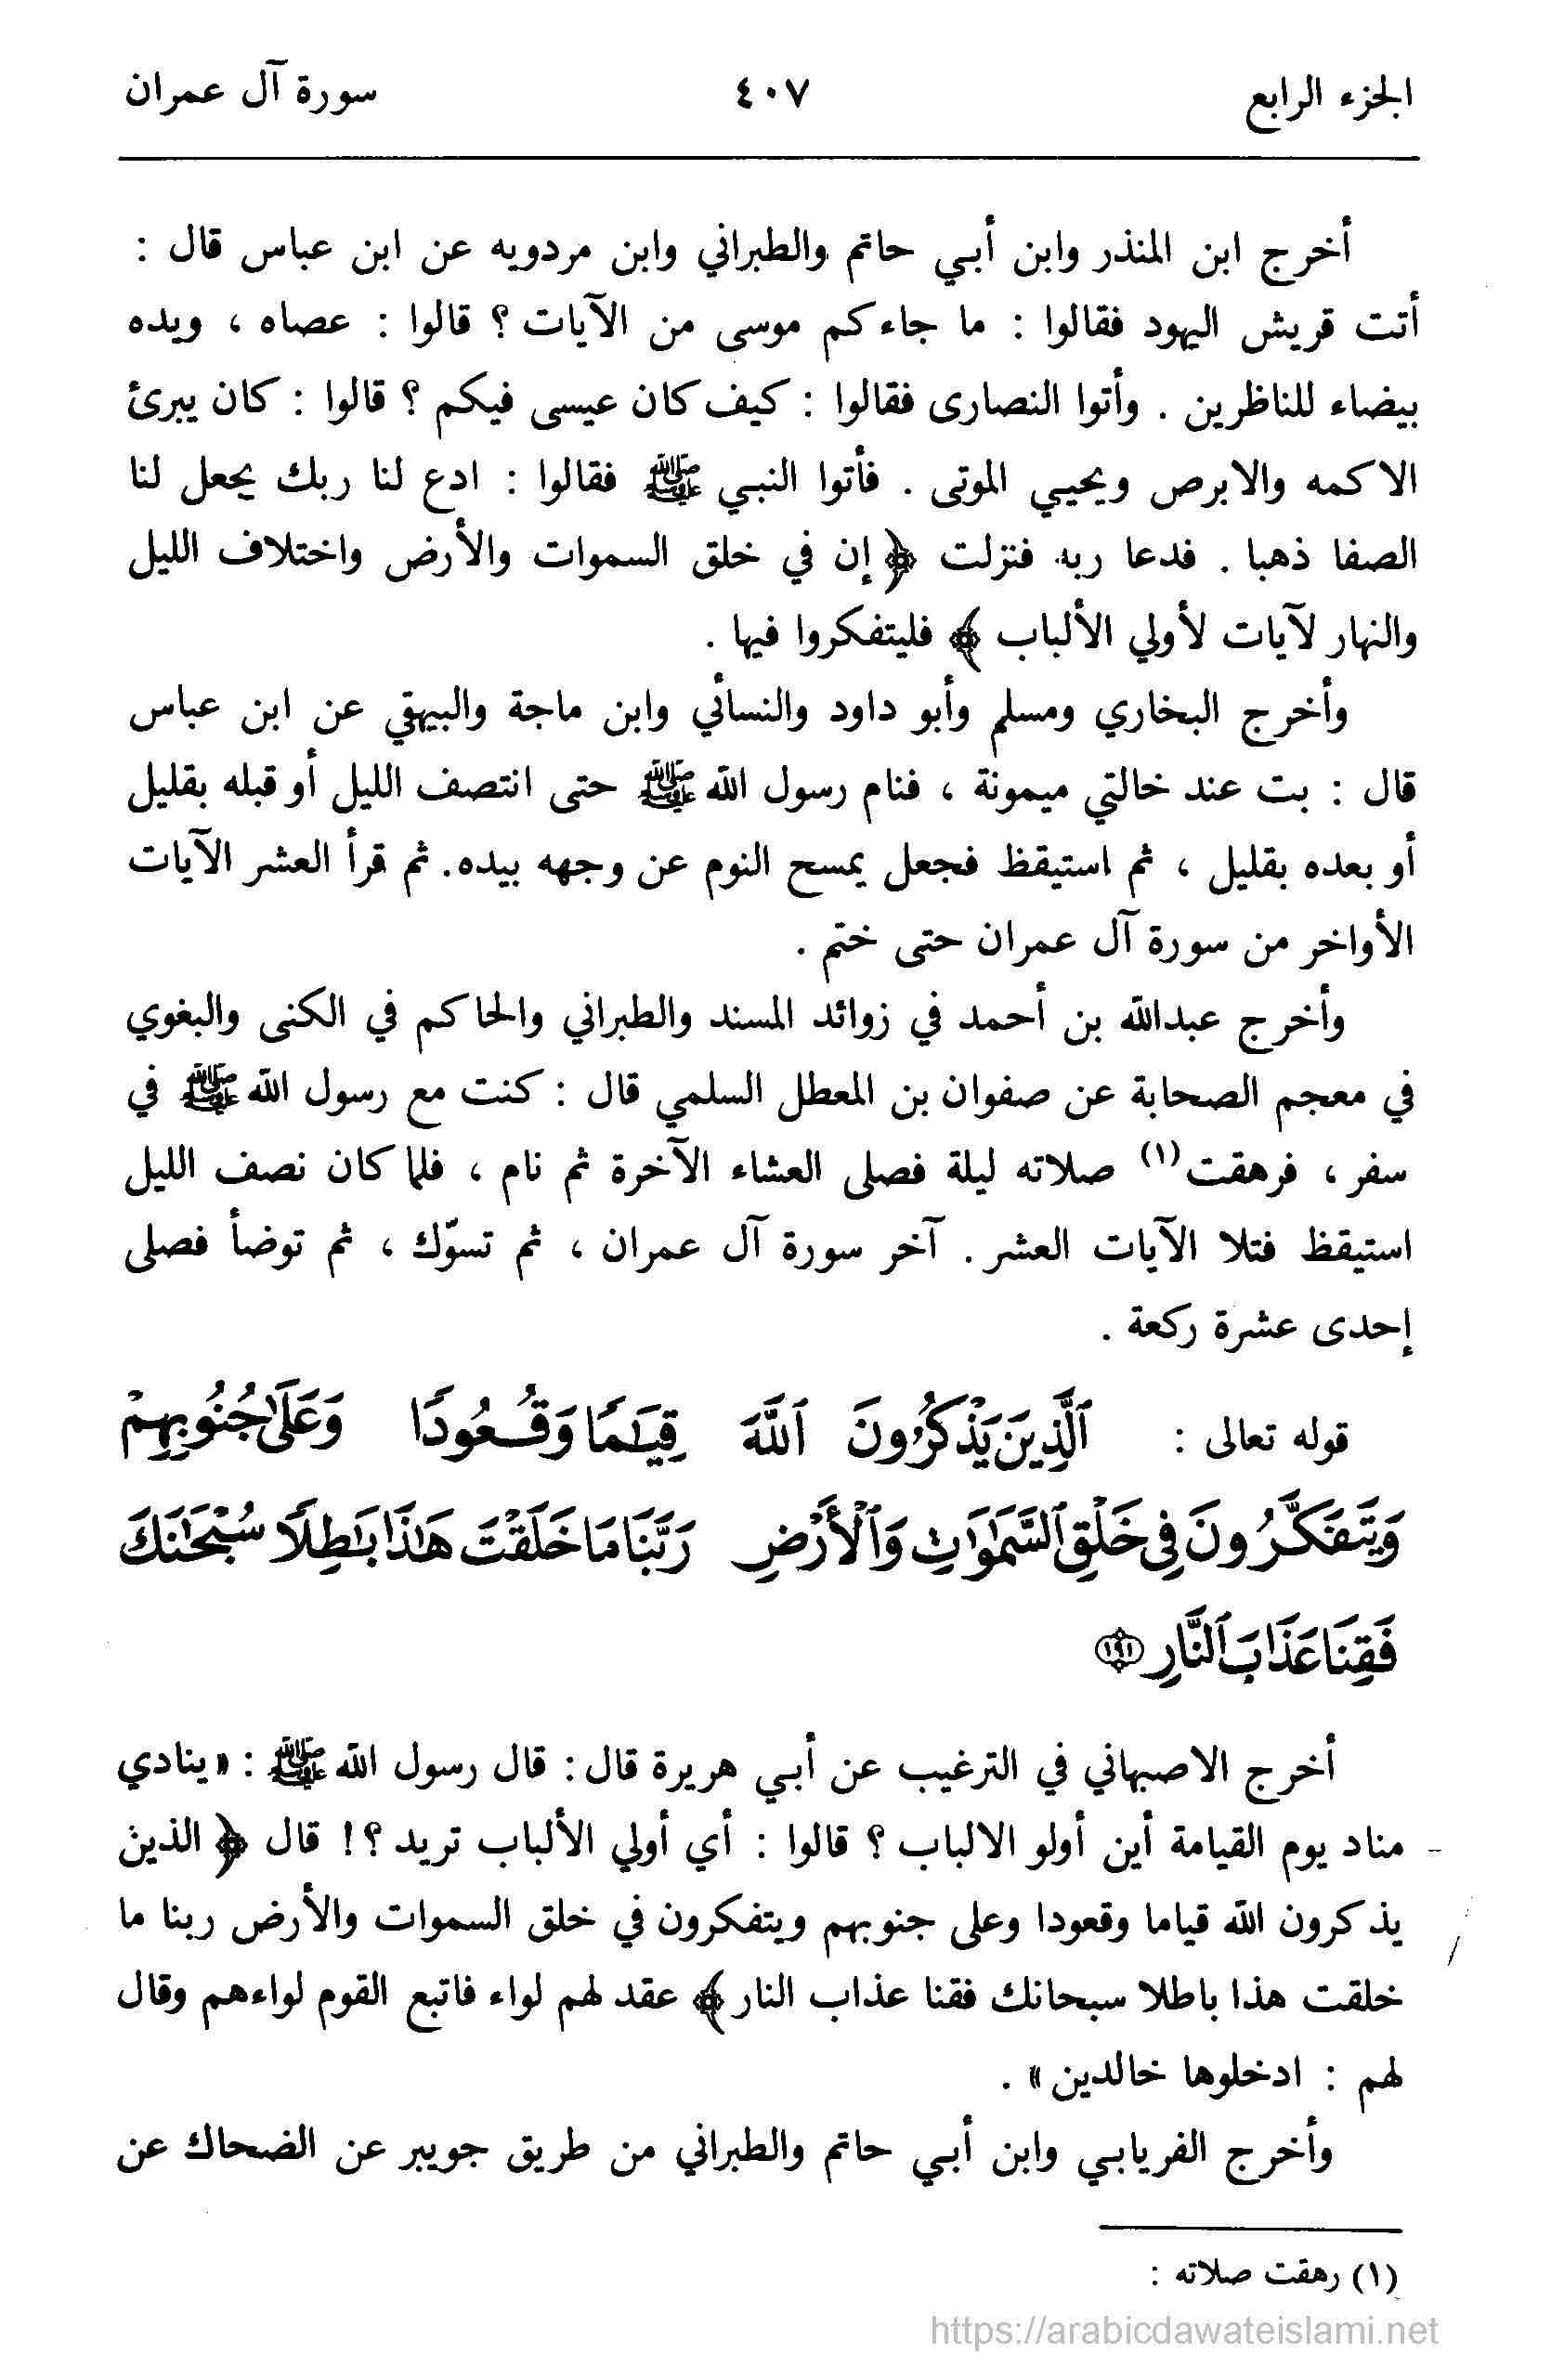 الجزء الرابع ٤٠٧ سورة آل عمران
أخرج ابن المنذر وابن أبي حاتم والطبراني وابن مردويه عن ابن عباس قال :
أتت قريش اليهود فقالوا : ما جاءكم موسى من الآيات ؟ قالوا : عصاه ، ويده
بيضاء للناظرين . وأتوا النصارى فقالوا : كيف كان عيسى فيكم ؟ قالوا : كان يبرئ
الاكمه والابرص ويحيي الموتى . فأتوا النبي ﷺ فقالوا : ادع لنا ربك يجعل لنا
الصفا ذهبا . فدعا ربه فنزلت ﴿ إن في خلق السموات والأرض واختلاف الليل
والنهار لآيات لأولي الألباب ﴾ فليتفكروا فيها .
وأخرج البخاري ومسلم وأبو داود والنسائي وابن ماجة والبيهقي عن ابن عباس
قال : بت عند خالتي ميمونة ، فنام رسول الله ﷺ حتى انتصف الليل أو قبله بقليل
أو بعده بقليل ، ثم استيقظ فجعل يمسح النوم عن وجهه بيده. ثم قرأ العشر الآيات
الأواخر من سورة آل عمران حتى ختم .
وأخرج عبدالله بن أحمد في زوائد المسند والطبراني والحاكم في الكنى والبغوي
في معجم الصحابة عن صفوان بن المعطل السلمي قال : كنت مع رسول الله ﷺ في
سفر ، فرهقت (١) صلاته ليلة فصلى العشاء الآخرة ثم نام ، فلما كان نصف الليل
استيقظ فتلا الآيات العشر . آخر سورة آل عمران ، ثم تسوّك ، ثم توضأ فصلى
إحدى عشرة ركعة .
قوله تعالى : ٱلَّذِينَ يَذْكُرُونَ ٱللَّهَ قِيَٰمًا وَقُعُودًا وَعَلَىٰ جُنُوبِهِمْ
وَيَتَفَكَّرُونَ فِى خَلْقِ ٱلسَّمَٰوَٰتِ وَٱلْأَرْضِ رَبَّنَا مَا خَلَقْتَ هَٰذَا بَٰطِلًا سُبْحَٰنَكَ
فَقِنَا عَذَابَ ٱلنَّارِ ١٩١
أخرج الاصبهاني في الترغيب عن أبي هريرة قال : قال رسول الله ﷺ : « ينادي
مناد يوم القيامة أين أولو الالباب ؟ قالوا : أي أولي الألباب تريد ؟ ! قال ﴿ الذين
يذكرون الله قياما وقعودا وعلى جنوبهم ويتفكرون في خلق السموات والأرض ربنا ما
خلقت هذا باطلا سبحانك فقنا عذاب النار ﴾ عقد لهم لواء فاتبع القوم لواءهم وقال
لهم : ادخلوها خالدين » .
وأخرج الفريابي وابن أبي حاتم والطبراني من طريق جويبر عن الضحاك عن
(١) رهقت صلاته :
https://arabicdawateislami.net